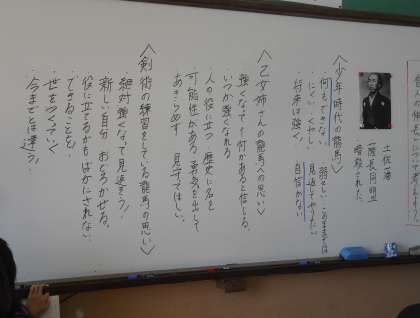 土佐藩
薩長同盟
暗殺された。
〈少年時代の龍馬〉
何もできない
弱せい
にくい くやしい 見返してやりたい
将来は強く！ 自信がない
〈乙女姉さんの龍馬への思い〉
強くなって何かがあると信じる。
いつか強くなれる
・人の役に立つ 歴史に名を
・可能性がある 勇気を出して
あきらめず 見守ってほしい。
〈剣術の練習をしている龍馬の思い〉
絶対強くなって見返そう！
新しい自分 おどろかせる。
役に立てる もうばかにされない
できることを、
・世をつくっていく
・今までとは違う。